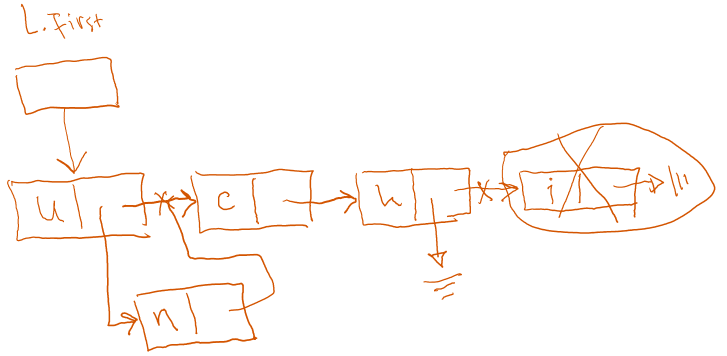 L.first
u
c
h
i
n